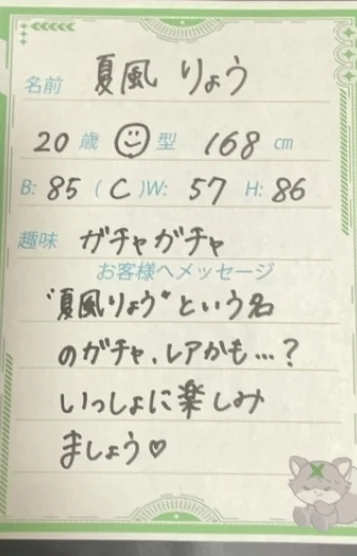 名前 夏風 りょう
20 歳 ☺ 型 168 cm
B: 85 ( C ) W: 57 H: 86
趣味 ガチャガチャ
お客様へメッセージ
"夏風りょう"という名
のガチャ、レアかも…?
いっしょに楽しみ
ましょう♡